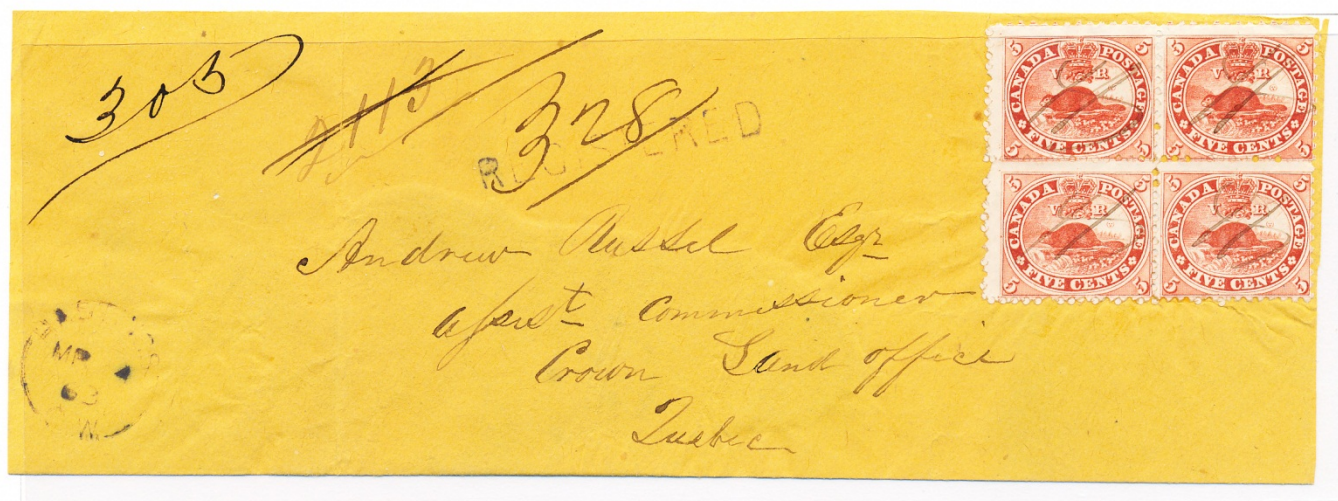 303
113
328
REGISTERED
5 CANADA POSTAGE 5
V R
5 FIVE CENTS 5
5 CANADA POSTAGE 5
V R
5 FIVE CENTS 5
5 CANADA POSTAGE 5
V R
5 FIVE CENTS 5
5 CANADA POSTAGE 5
V R
5 FIVE CENTS 5
Andrew Russel Esqr
assist Commissioner
Crown Land office
Quebec
MR
63
W